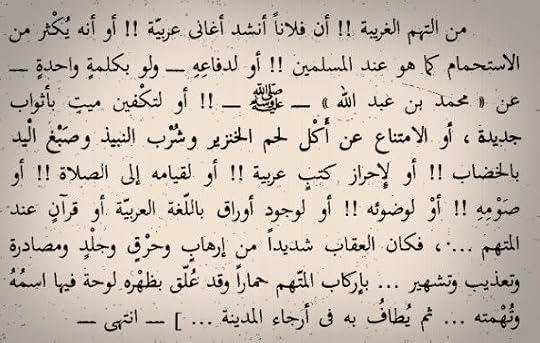 من التهم الغريبة !! أن فلاناً أنشد أغانى عربيّة !! أو أنه يُكْثر من
الاستحمام كما هو عند المسلمين !! أو لدفاعِهِ ــ ولو بكلمةٍ واحدةٍ ــ
عن « محمد بن عبد الله » ــ ﷺ ــ !! أو لتكْفين ميتٍ بأثواب
جديدة ، أو الامتناع عن أَكْل لحم الخنزير وشُرْب النبيذ وصَبْغ الْيد
بالخضاب !! أو لإحراز كتبٍ عربية !! أو لقيامه إلى الصلاة !! أو
صَوْمِهِ !! أوْ لوضوئه !! أو لوجود أوراق باللّغة العربيّة أو قرآنٍ عند
المتهم ... ، فكان العقاب شديداً من إرهابٍ وحرْقٍ وجلْدٍ ومصادرة
وتعذيب وتشهير ... بإركاب المتّهم حماراً وقد عُلّق بظهْره لوحة فيها اسمُهُ
وتُهْمته ... ثم يُطافُ به فى أرجاء المدينة ... ] ــ انتهى ــ